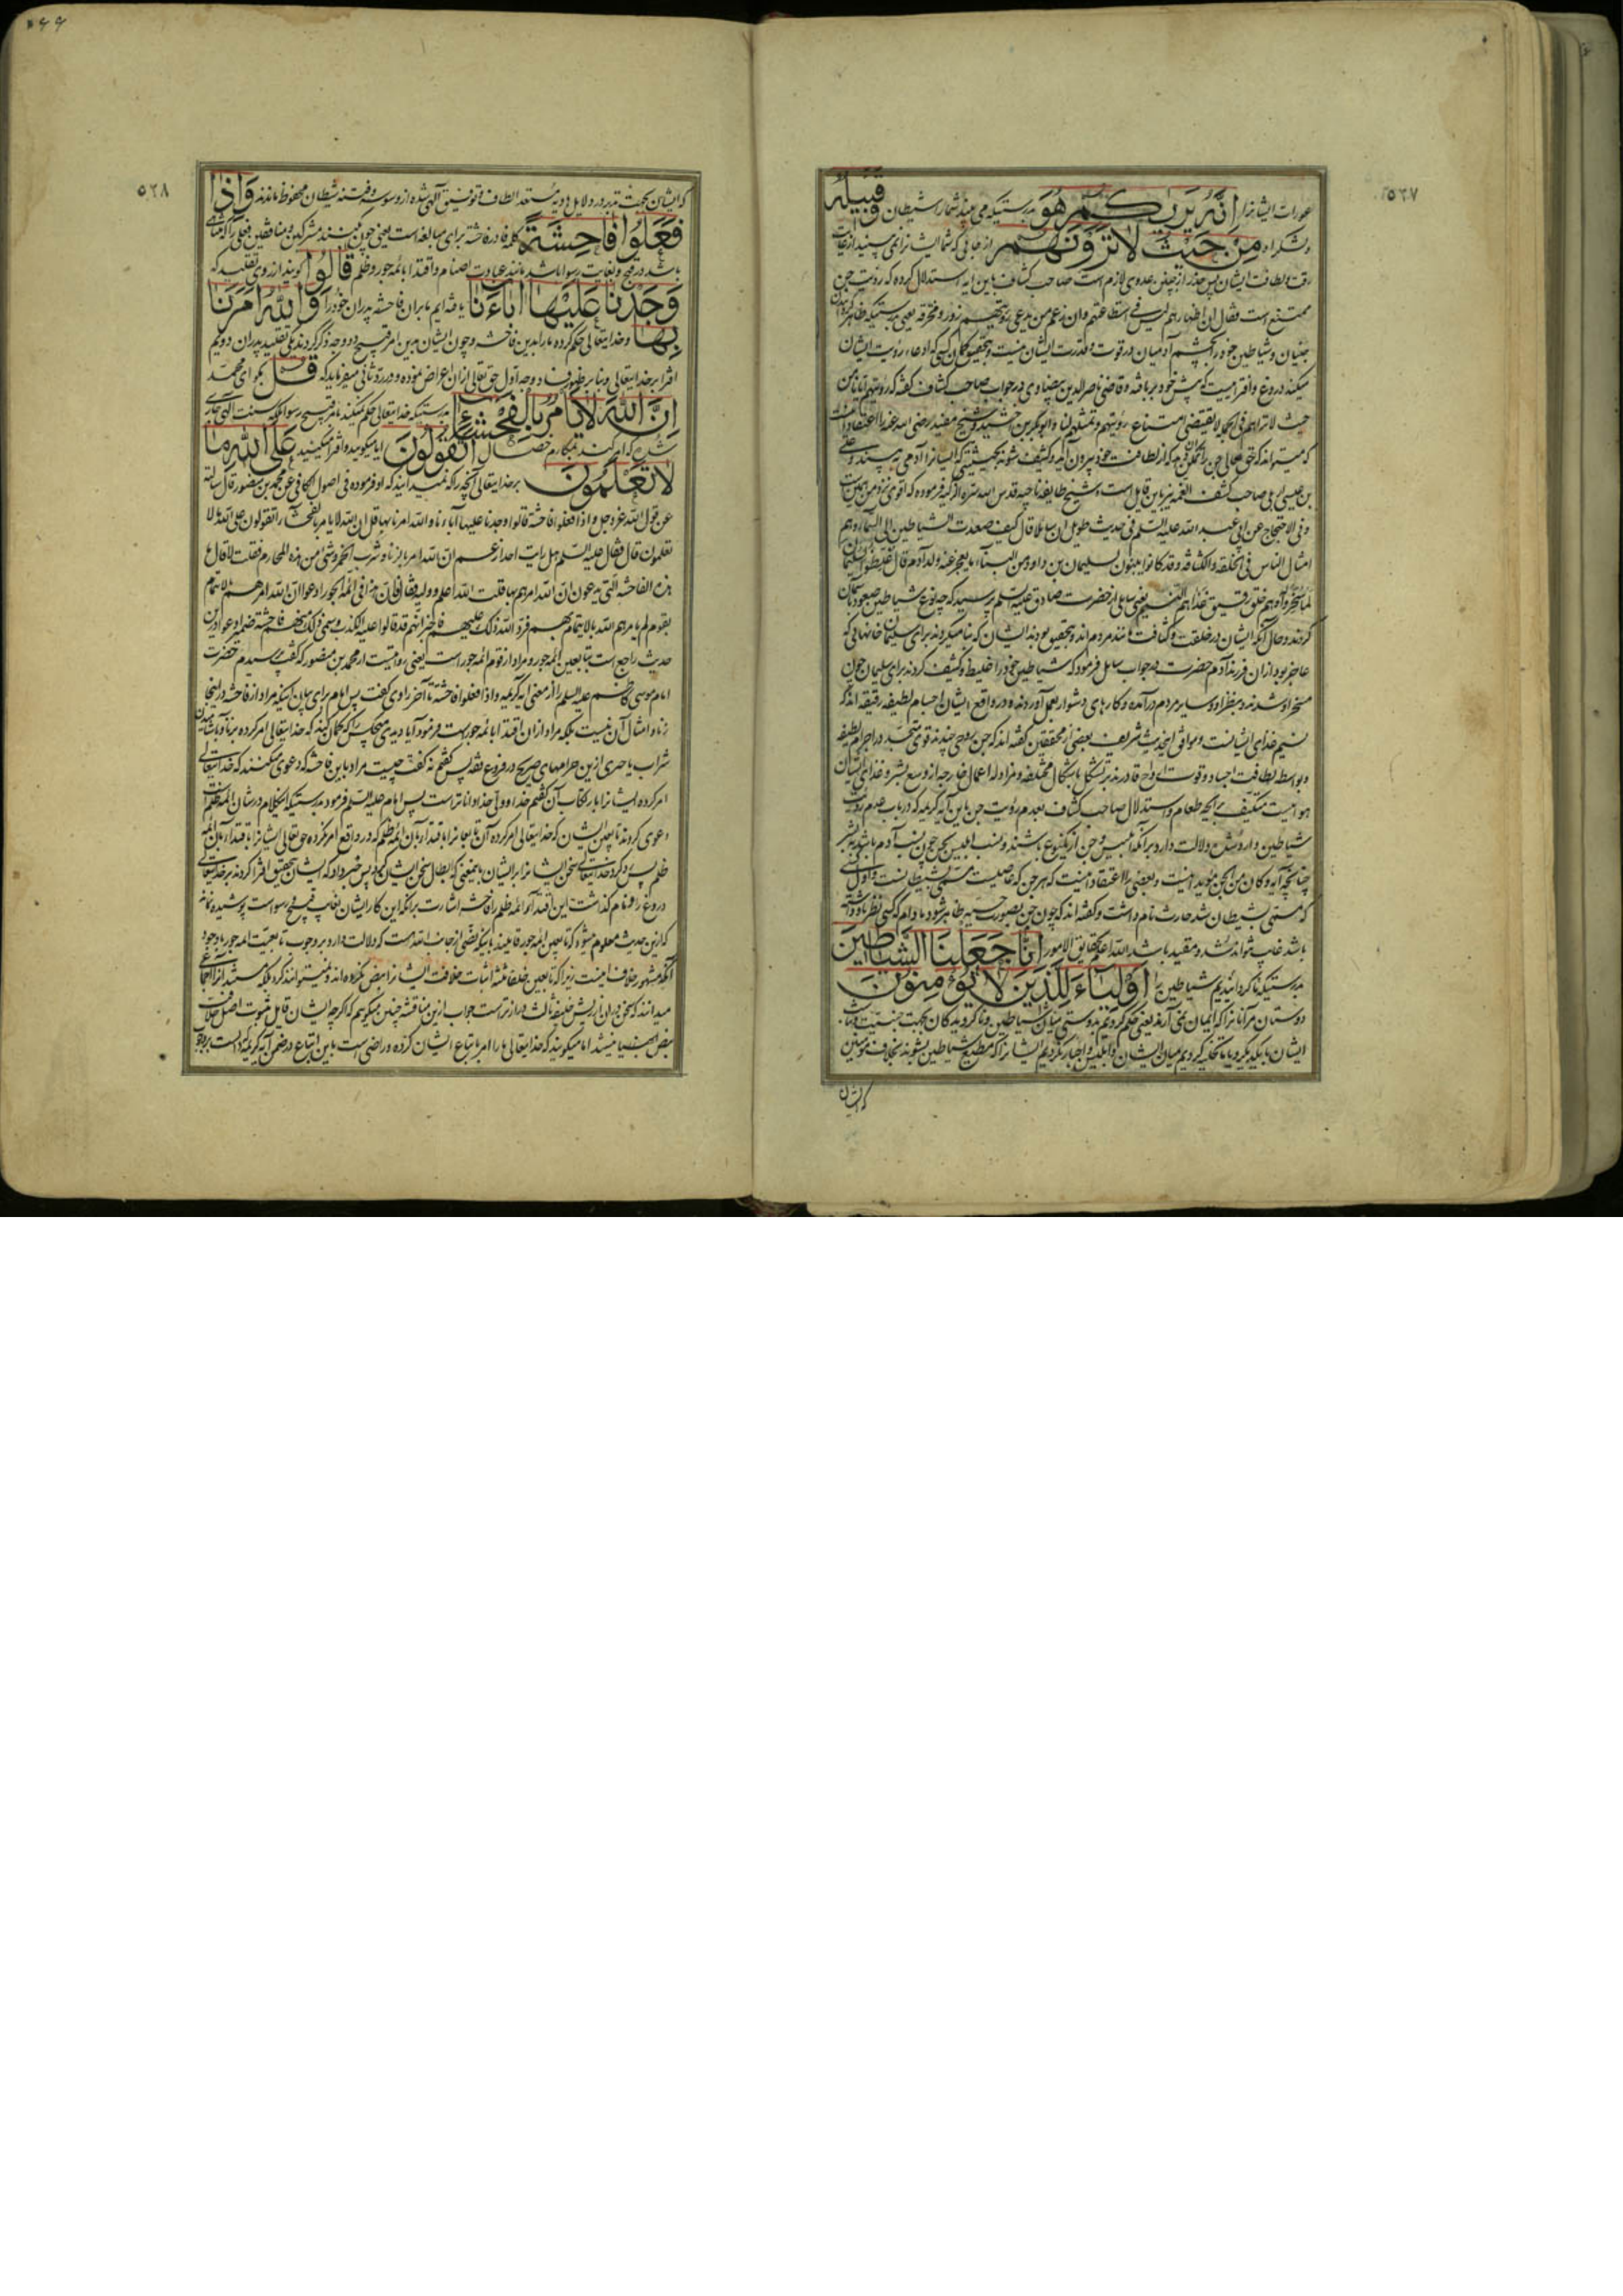 ٥٢٧
عورات ایشانرا إِنَّهُ يَرَىٰكُمْ هُوَ بدرستیکه می بیند شما را شیطان وَقَبِيلُهُ
و لشکر او مِنْ حَيْثُ لَا تَرَوْنَهُمْ از جایی که شما ایشانرا نمی بینید
لطافت ایشان پس حذر از چنین عدوی لازم است صاحب کشاف باین آیه استدلال کرده که رؤیت جن
ممتنع است فقال ان اظهارهم لیس فی استطاعتهم وان زعم من یدعی رؤیتهم زور و مخرقه یعنی بدرستیکه ظاهر
جنیان و شیاطین خود را بچشم آدمیان در قوت و قدرت ایشان نیست و بتحقیق گمان کسی که ادعاء رؤیت ایشان
میکند دروغ و افترائیست که پیش خود بربافته و قاضی ناصر الدین بیضاوی در جواب صاحب کشاف گفته که رؤیتهم ایانا من
حیث لا نراهم فی الجمله لا یقتضی امتناع رؤیتهم و تمثلهم لنا و ابو بکر بن اخشید و شیخ مفید رضی الله عنه را اعتقاد
که حق تعالی جن را که از لطافت خود بیرون آیند و کثیف شوند بحیثیتی که ایشانرا آدمی به بیند و علی
بن عیسی اربلی صاحب کشف الغمه نیز باین قایل است و شیخ طایفه ناجیه قدس الله سره
و فی الاحتجاج عن ابی عبد الله علیه السلم فی حدیث طویل ان سایلا قال کیف صعدت الشیاطین الی السماء و هم
امثال الناس فی الخلقه و الکثافه و قد کانوا یبنون لسلیمان بن داود من البناء ما یعجز عنه ولد آدم قال غلظوا لسلیمان
لما سخروا و هم خلق رقیق غذاهم النسیم یعنی سایلی از حضرت صادق علیه السلم پرسید که چه نوع شیاطین صعود بآسمان
کردند و حال آنکه ایشان در خلقت و کثافت مانند مردم اند و بتحقیق بودند ایشان که بنا میکردند برای سلیمان خانهایی که
عاجز بود از آن فرزند آدم حضرت در جواب سایل فرمود که شیاطین خود را غلیظ و کثیف کردند برای سلیمان چون
مسخر او شدند و بنظر او و سایر مردم در آمده و کارهای دشوار بعمل آوردند و در واقع ایشان اجسام لطیفه رقیقه اند که
نسیم غذای ایشانست و موافق این حدیث شریف بعضی از محققین گفته اند که جن روحی چندند قوی متجسد در اجرام لطیفه
و بواسطه لطافت اجساد و قوت ارواح قادرند بر تشکل باشکال مختلفه و مزاوله اعمال خارجه از وسع بشر و غذای ایشان
هوائیست متکیف برایحه طعام و استدلال صاحب کشاف بعدم رؤیت جن باین آیه کریمه که در باب عدم رؤیت
شیاطین وارد شده دلالت دارد بر آنکه ابلیس و جن از یکنوع باشند و نسب ابلیس بجن چون نسب آدم باشد ببشر
چنانچه آیه و کان من الجن مؤید اینست و بعضی را اعتقاد اینست که هر جن که عاصیست مسمی بشیطانست و اول کسی
که مسمی بشیطان شد حارث نام داشت و گفته اند که چون جن بصورت جسمیه ظاهر شود مادام که کسی نظر باو داشته
باشد غایب نتواند شد و مقید باشد الله اعلم بحقایق الامور إِنَّا جَعَلْنَا الشَّيَاطِينَ
بدرستیکه ما گردانیدیم شیاطین را أَوْلِيَاءَ لِلَّذِينَ لَا يُؤْمِنُونَ
دوستان مر آنانرا که ایمان نمی آرند یعنی حکم کردیم بدوستی میان شیاطین و ناگرویدکان بجهت جنسیت
ایشان با یکدیگر و یا ما تخلیه کردیم میان ایشان و ابلیس و اجبار نکردیم ایشانرا که مطیع شیاطین نشوند بخلاف مؤمنین
که ایشان
٥٢٨
که ایشان بجهت تدبر در دلایل ربوبیه مستعد الطاف و توفیق الهی شده از وسوسه و فتنه شیطان محفوظ ماندند وَإِذَا
فَعَلُوا فَاحِشَةً کلمه تا در فاحشه برای مبالغه است یعنی چون کنند مشرکین و منافقین فعلی را که متناهی
باشد در قبح و بغایت رسوا باشد مانند عبادت اصنام و اقتدا بائمه جور و ظلم قَالُوا گویند از روی تقلید که
وَجَدْنَا عَلَيْهَا آبَاءَنَا یافته ایم ما بر آن فاحشه پدران خود را وَاللَّهُ أَمَرَنَا
بِهَا و خدایتعالی حکم کرده ما را بدین فاحشه و چون ایشان بدین امر قبیح دو وجه ذکر کردند یکی تقلید پدران دویم
افترا بر خدایتعالی و بنابر ظهور فساد وجه اول حق تعالی از آن اعراض نموده و در رد ثانی میفرماید که قُلْ بگو ای محمد
إِنَّ اللَّهَ لَا يَأْمُرُ بِالْفَحْشَاءِ بدرستیکه خدایتعالی حکم نمیکند بامر قبیح رسوا بلکه سنت الهی جاری
شده که امر کند بمکارم خصال أَتَقُولُونَ آیا میگویید و افترا میکنید عَلَى اللَّهِ مَا
لَا تَعْلَمُونَ بر خدایتعالی آنچه را که نمیدانید که او فرموده فی اصول الکافی عن محمد بن منصور قال سالته
عن قول الله عز و جل و اذا فعلوا فاحشه قالوا وجدنا علیها آباءنا و الله امرنا بها قل ان الله لا یامر بالفحشاء اتقولون علی الله ما لا
تعلمون قال فقال علیه السلم هل رایت احدا زعم ان الله امر بالزنا و شرب الخمر و شئ من هذه المحارم فقلت لا قال ما
هذه الفاحشه التی یدعون ان الله امرهم بها قلت الله اعلم و ولیه فقال فان هذا فی ائمه الجور ادعوا ان الله امرهم بالایتمام
بقوم لم یامرهم الله بالایتمام بهم فرد الله ذلک علیهم فاخبر انهم قد قالوا علیه الکذب و سمی ذلک منهم فاحشه ضمیر ادعوا درین
حدیث راجع است بتابعین ائمه جور و مراد از قوم ائمه جور است یعنی روایتست از محمد بن منصور که گفت پرسیدم حضرت
امام موسی کاظم علیه السلم را از معنی آیه کریمه و اذا فعلوا فاحشه تا آخر راوی گفت پس امام برای بیان اینکه مراد از فاحشه در اینجا
زنا و امثال آن نیست بلکه مراد از آن اقتدا بائمه جور است فرمود آیا دیدی هیچکس را که گمان کند که خدایتعالی امر کرده بزنا و آشامیدن
شراب یا چیزی ازین حرامهای صریح در فروع فقه پس گفتم نه گفت چیست مراد باین فاحشه که دعوی میکنند که خدایتعالی
امر کرده ایشانرا بارتکاب آن گفتم خدا و ولی خدا داناتر است پس امام علیه السلم فرمود بدرستیکه اینکلام در شان ائمه ظلم است
دعوی کردند تابعان ایشان که خدایتعالی امر کرده آن تابعانرا باقتدا بآن ائمه ظلم که در واقع امر نکرده حق تعالی ایشانرا باقتدا بآن ائمه
ظلم پس رد کرد خدایتعالی سخن ایشانرا بر ایشان باینمعنی که ابطال سخن ایشان کرد پس خبر داد که ایشان بتحقیق افترا کردند بر خدایتعالی
دروغ را و نام گذاشت این اقتدا بائمه ظلم را فاحشه اشارت بر آنکه این کار ایشان بغایت قبیح و رسواست پوشیده نماند
که ازین حدیث معلوم میشود که تابعین ائمه جور قایلند باینکه نصی از جانب الله هست که دلالت دارد بر وجوب تابعیت ائمه جور با وجود
آنکه مشهور خلاف اینست زیرا که تابعین خلفا ثلثه اثبات خلافت ایشانرا بنص نکرده اند و نمیتوانند کرد بلکه مستند آنرا اجماع
میدانند که سخن در آن از ریش خلیفه ثالث درازتر است جواب ازین مناقشه چنین میگوییم که اگر چه ایشان قایل بثبوت اصل خلافت
بنص نیستند اما میگویند که خدایتعالی ما را امر باتباع ایشان کرده و راضی است باین اتباع در ضمن آیه کریمه که دالست بر وجوب